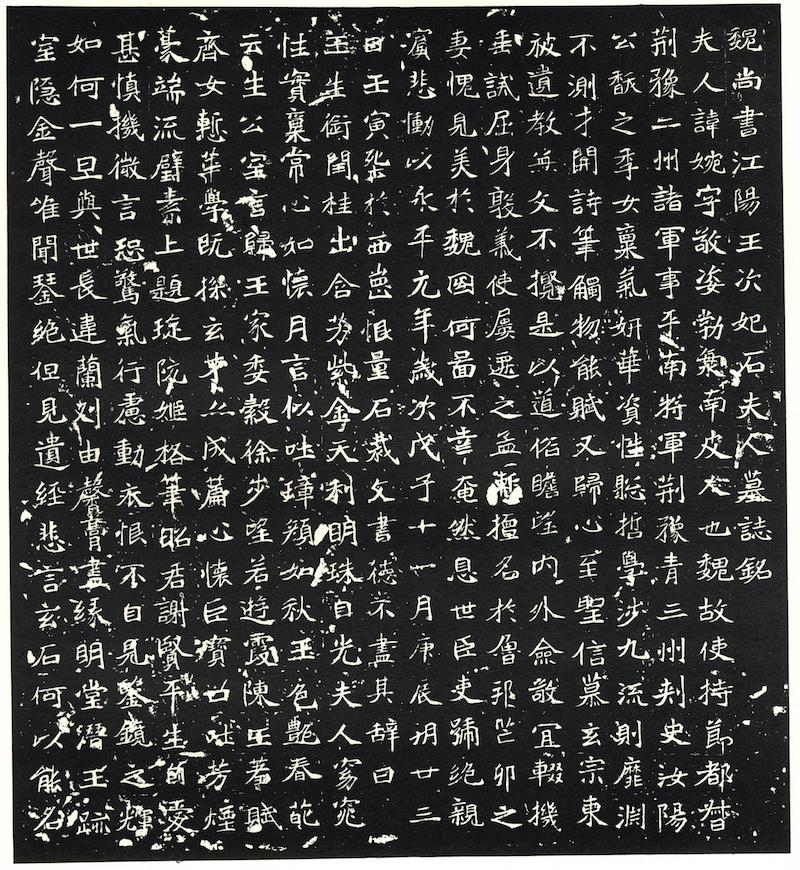 魏尚書江陽王次妃石夫人墓誌銘
夫人諱婉字敬姿勃海南皮人也魏故使持節都督
荆豫二州諸軍事平南將軍荆豫青三州刺史汝陽
公馥之季女稟氣妍華資性聡哲學涉九流則靡淵
不測才關詩筆觸物能賦又歸心至聖信慕玄宗東
被遺教無文不攬是以道俗瞻望內外僉敬冝輟機
垂誡屈身敦義使屡遷之孟慙擅名於魯邦芒卯之
妻愧見美於魏國何啚不幸奄然息世臣吏號絕親
賓悲慟以永平元年歲次戊子十一月庚辰朔廿三
日壬寅塟於西崗恨量石裁文書德不盡其辭曰
玉生銜閏桂出含芳紫金天利明珠自光夫人窈窕
性實稟常心如懷月言似吐璋顏如秋玉色艷春葩
云生公室言歸王家委縠徐步望若遊霞陳王羞賦
齊女慙華學既採玄才亦成篇心懷巨寶口吐芳煙
篆端流璧素上題琁阮姬格筆昭君謝賢平生自愛
甚慎機微言恐驚氣行慮動衣恨不自見鑒鏡之輝
如何一旦與世長違蘭刈由馨膏盡緣明堂潛玉跡
室隐金聲唯聞琴絕但見遺經悲言玄石何以能名